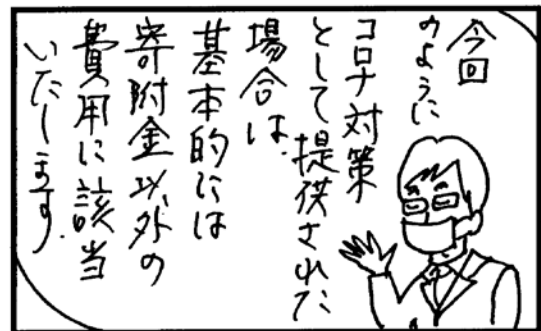 今回
のように
コロナ対策
として提供された
場合は、
基本的には
寄附金以外の
費用に該当
いたします。